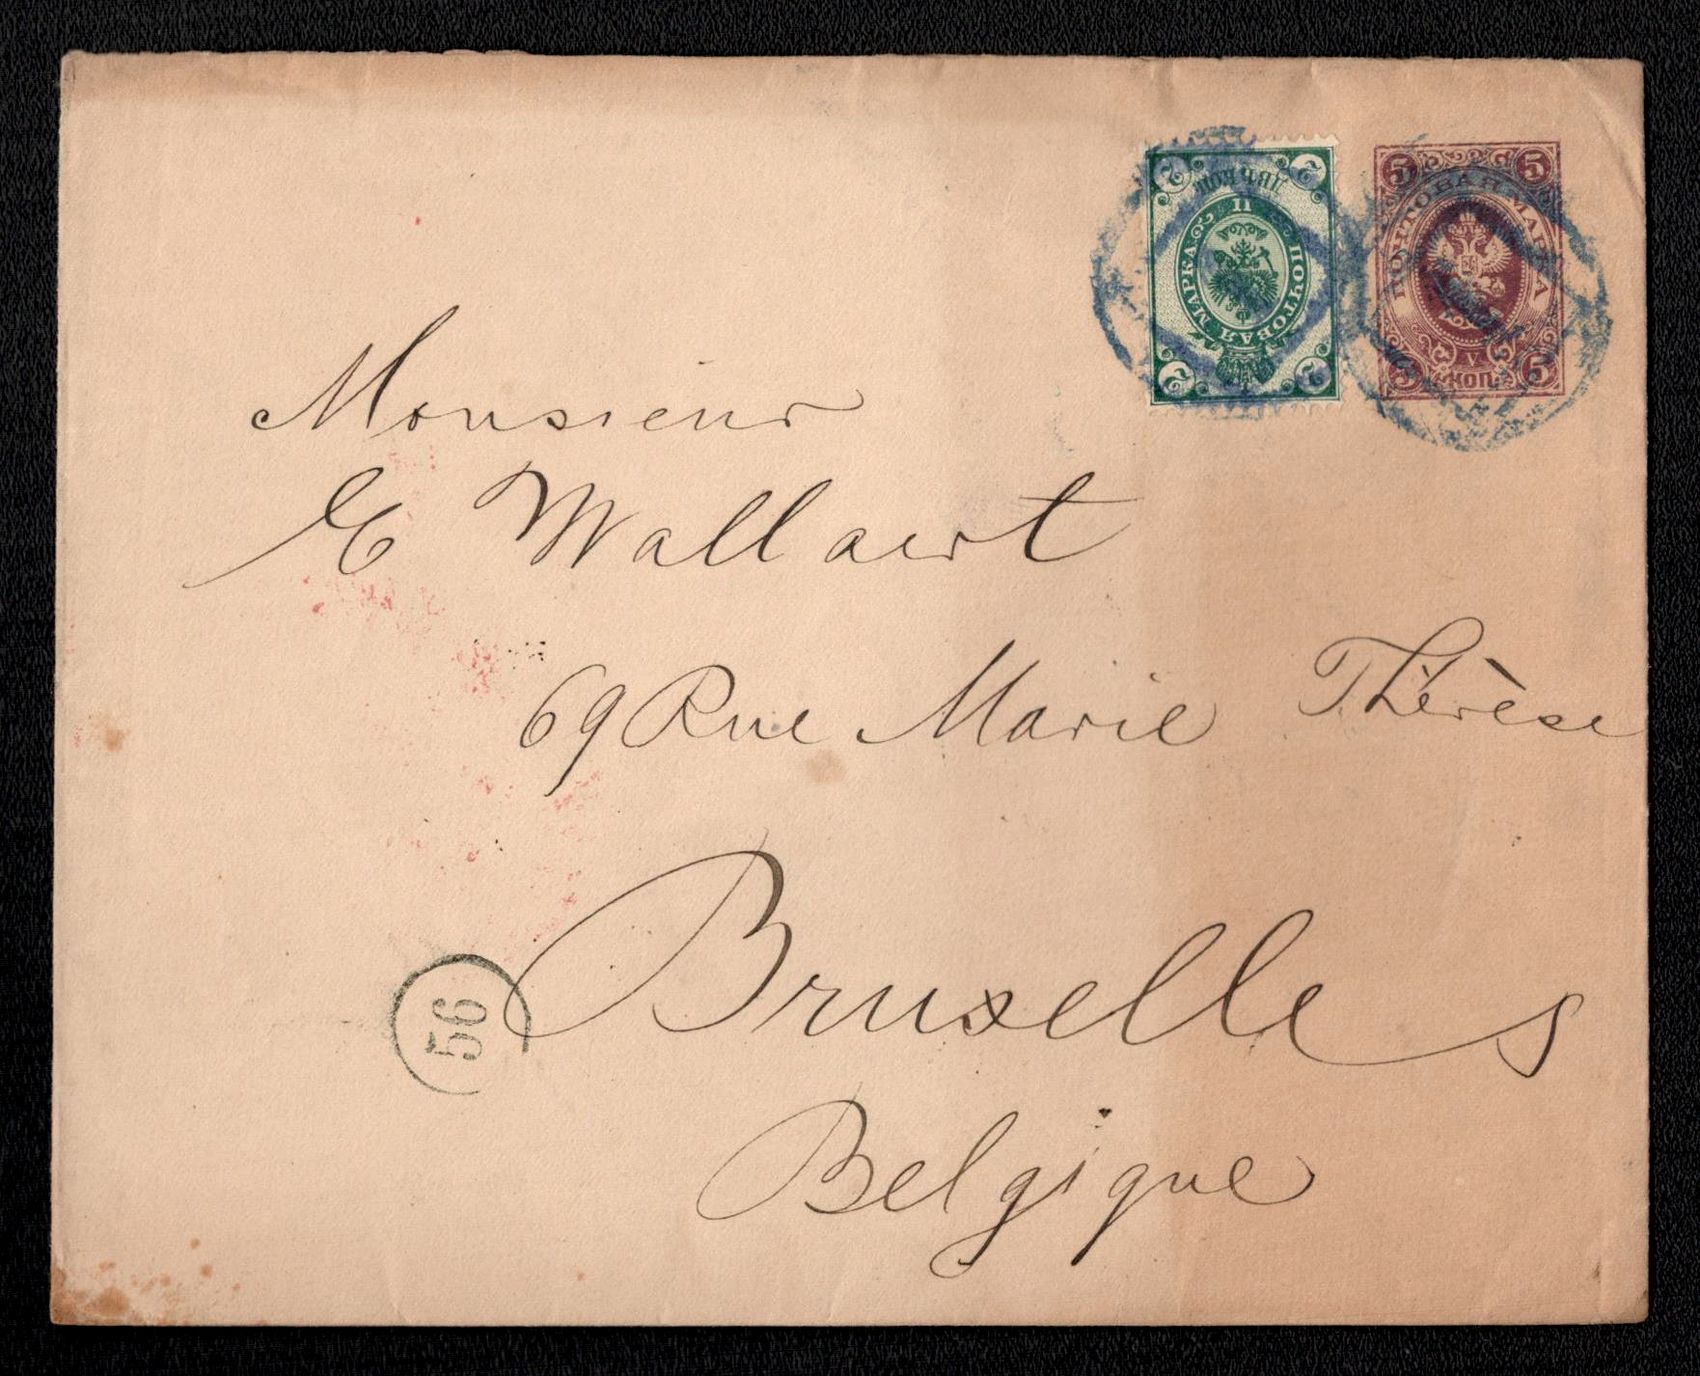 2 ДВѢ КОП. 2
ПОЧТОВАЯ МАРКА
II
2 2
5 5
ПОЧТОВАЯ МАРКА
V
5 КОП. 5
Monsieur
E Wallaert
69 Rue Marie Thérèse
Bruxelles
56
Belgique